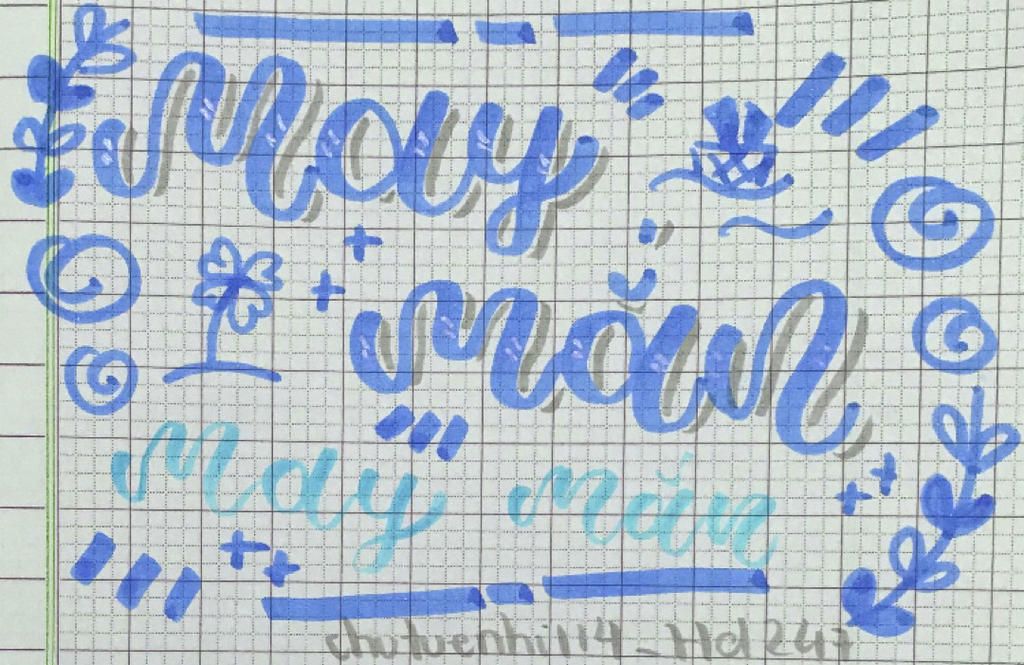 May
mắn
May mắn
chutuenhi114_Hd247